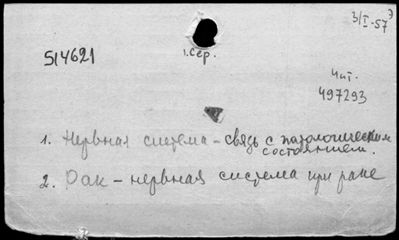 3/I-57 Э
514621
1.Сер.
Чит.
497293
1. Нервная система - связь с патологическим
состоянием.
2. Рак - нервная система при раке